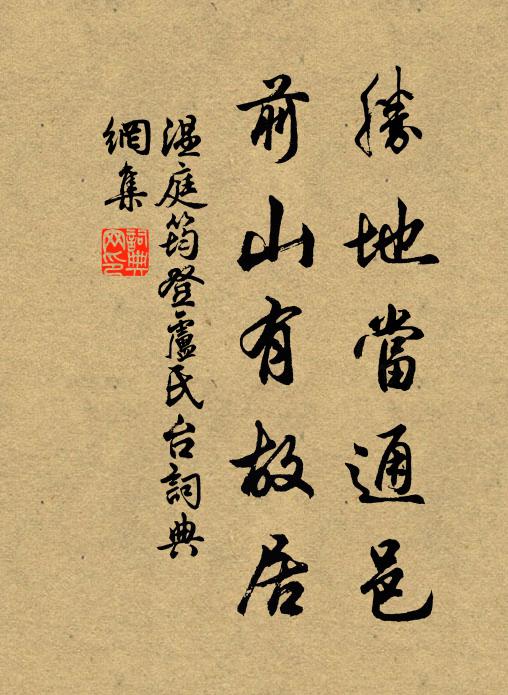 勝地當通邑
前山有故居
温庭筠登盧氏台詞典
網集
詞典
网印